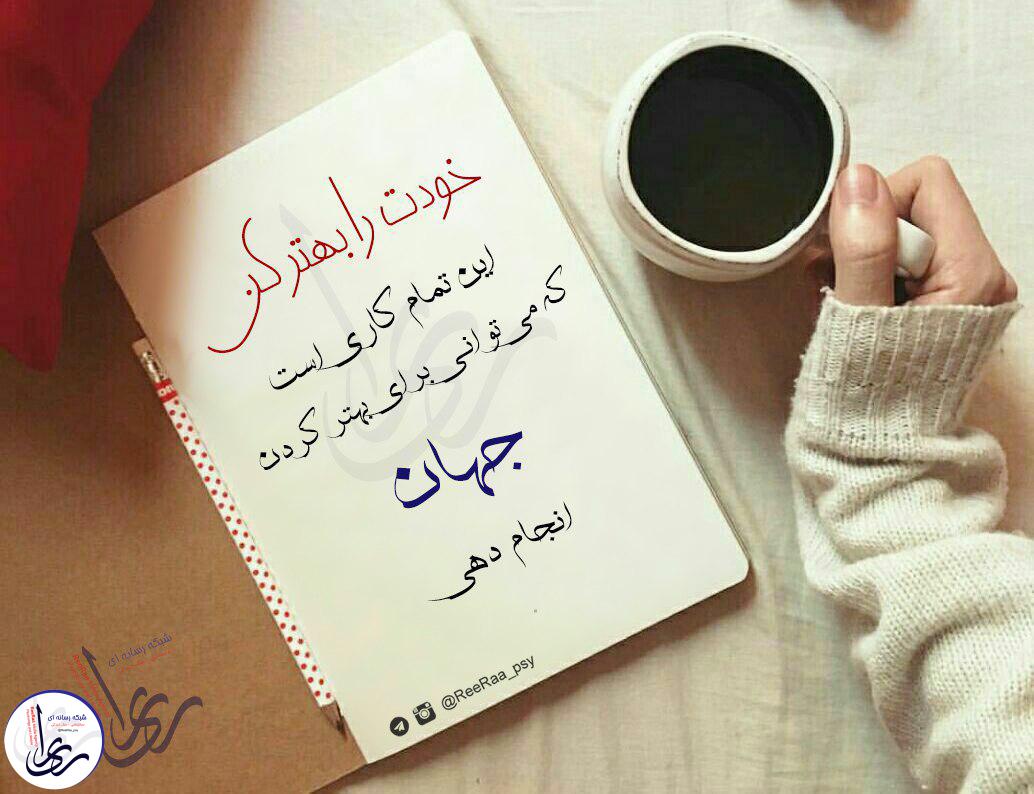 خودت را بهتر کن
این تمام کاری است
که می توانی برای بهتر کردن
جهان
انجام دهی
@ReeRaa_psy
شبکه رسانه ای
ری را
شبکه رسانه ای
ری را